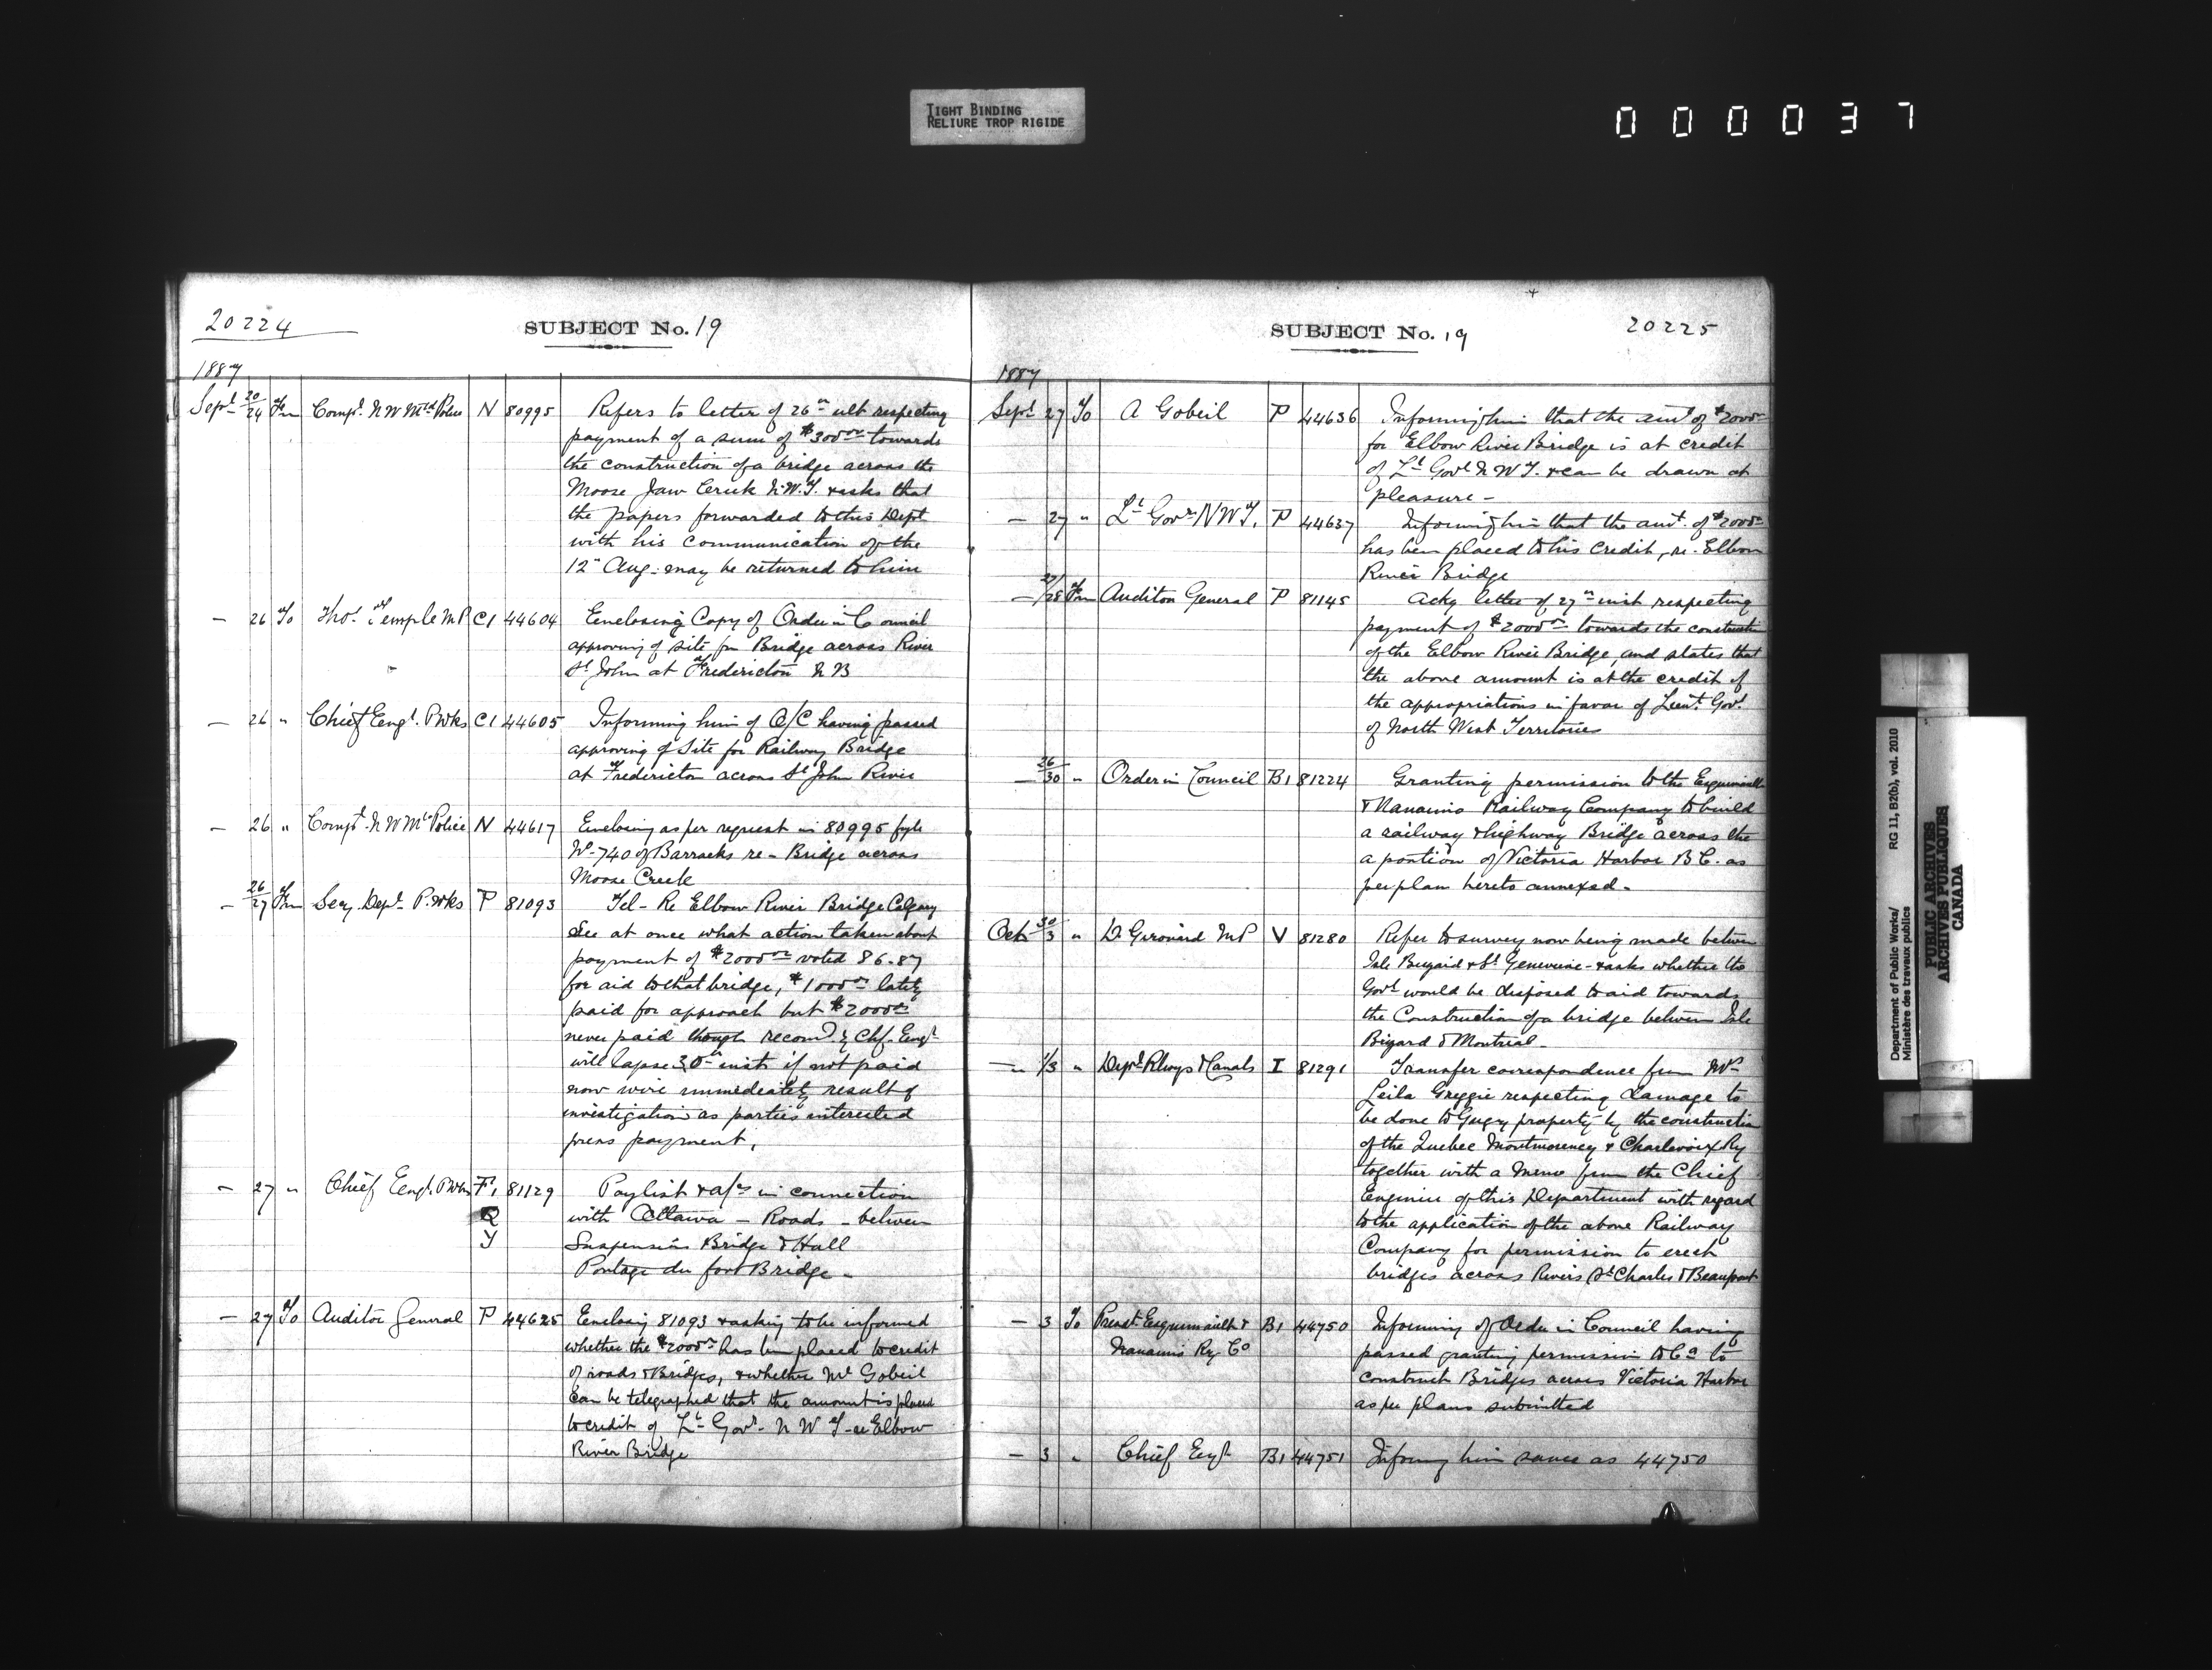 TIGHT BINDING
RELIURE TROP RIGIDE
000037
20224
SUBJECT No. 19
1887
Sept 20/24 Fm Compt. N W Mtd Police N 80995 Refers to letter of 26th ult respecting
payment of a sum of $300.00 towards
the construction of a bridge across the
Moose Jaw Creek N.W.T. & asks that
the papers forwarded to this Dept
with his communication of the
12th Aug. may be returned to him
— 26 To Thos. Temple MP C1 44604 Enclosing Copy of Order in Council
approving of site for Bridge across River
St John at Fredericton N B
— 26 " Chief Engr. P Wks C1 44605 Informing him of O/C having passed
approving of Site for Railway Bridge
at Fredericton across St John River
— 26 " Compt. N W Mtd Police N 44617 Enclosing as per request in 80995 fyle
No-740 of Barracks re - Bridge across
Moose Creek
— 26/27 Fm Secy. Dept. P. Wks P 81093 Tel - Re Elbow River Bridge Calgary
See at once what action taken about
payment of $2000.00 voted 86-87
for aid to that bridge, $1000.00 lately
paid for approach but $2000.00
never paid though recomd. by Chf. Engr
will lapse 30th inst if not paid
now wire immediately result of
investigation as parties interested
press payment.
— 27 " Chief Engr. P Wks F1 81129 Paylist & a/cs in connection
Q with Ottawa - Roads - between
Y Suspension Bridge & Hull
Portage du fort Bridge -
— 27 To Auditor General P 44625 Enclosing 81093 & asking to be informed
whether the $2000.00 has been placed to credit
of roads & Bridges, & whether Mr Gobeil
can be telegraphed that the amount is placed
to credit of Lt Govr. N W T - re Elbow
River Bridge
SUBJECT No. 19
20225
1887
Sept 27 To A Gobeil P 44636 Informing him that the amt of $2000.00
for Elbow River Bridge is at credit
of Lt Govr N W T. & can be drawn at
pleasure -
— 27 " Lt Govr N W T. P 44637 Informing him that the amt. of $2000.00
has been placed to his credit, re. Elbow
River Bridge
— 27/28 Fm Auditor General P 81145 Ackg letter of 27th inst respecting
payment of $2000.00 towards the construction
of the Elbow River Bridge, and states that
the above amount is at the credit of
the appropriations in favor of Lieut. Govr.
of North West Territories
— 26/30 " Order in Council B1 81224 Granting permission to the Esquimalt
& Nanaimo Railway Company to build
a railway & highway Bridge across the
a portion of Victoria Harbor B C. as
per plan hereto annexed -
Oct 30/3 " D. Girouard M P V 81280 Refer to survey now being made between
Isle Bizard & St Genevieve - & asks whether the
Govt would be disposed to aid towards
the Construction of a bridge between Isle
Bizard & Montreal -
— 1/3 " Dept Rlwys & Canals I 81291 Transfer correspondence from Mrs
Leila Greggie respecting damage to
be done to Gugy property by the construction
of the Quebec Montmorency & Charlevoix Ry
together with a Memo from the Chief
Engineer of this Department with regard
to the application of the above Railway
Company for permission to erect
bridges across Rivers St Charles & Beauport
— 3 To Presdt. Esquimault & B1 44750 Informing of Order in Council having
Nanaimo Ry Co passed granting permission to Co to
construct Bridges across Victoria Harbor
as per plans submitted
— 3 " Chief Engr B1 44751 Informg him same as 44750
Department of Public Works/ RG 11, B2(b), vol. 2010
Ministère des travaux publics
PUBLIC ARCHIVES
ARCHIVES PUBLIQUES
CANADA